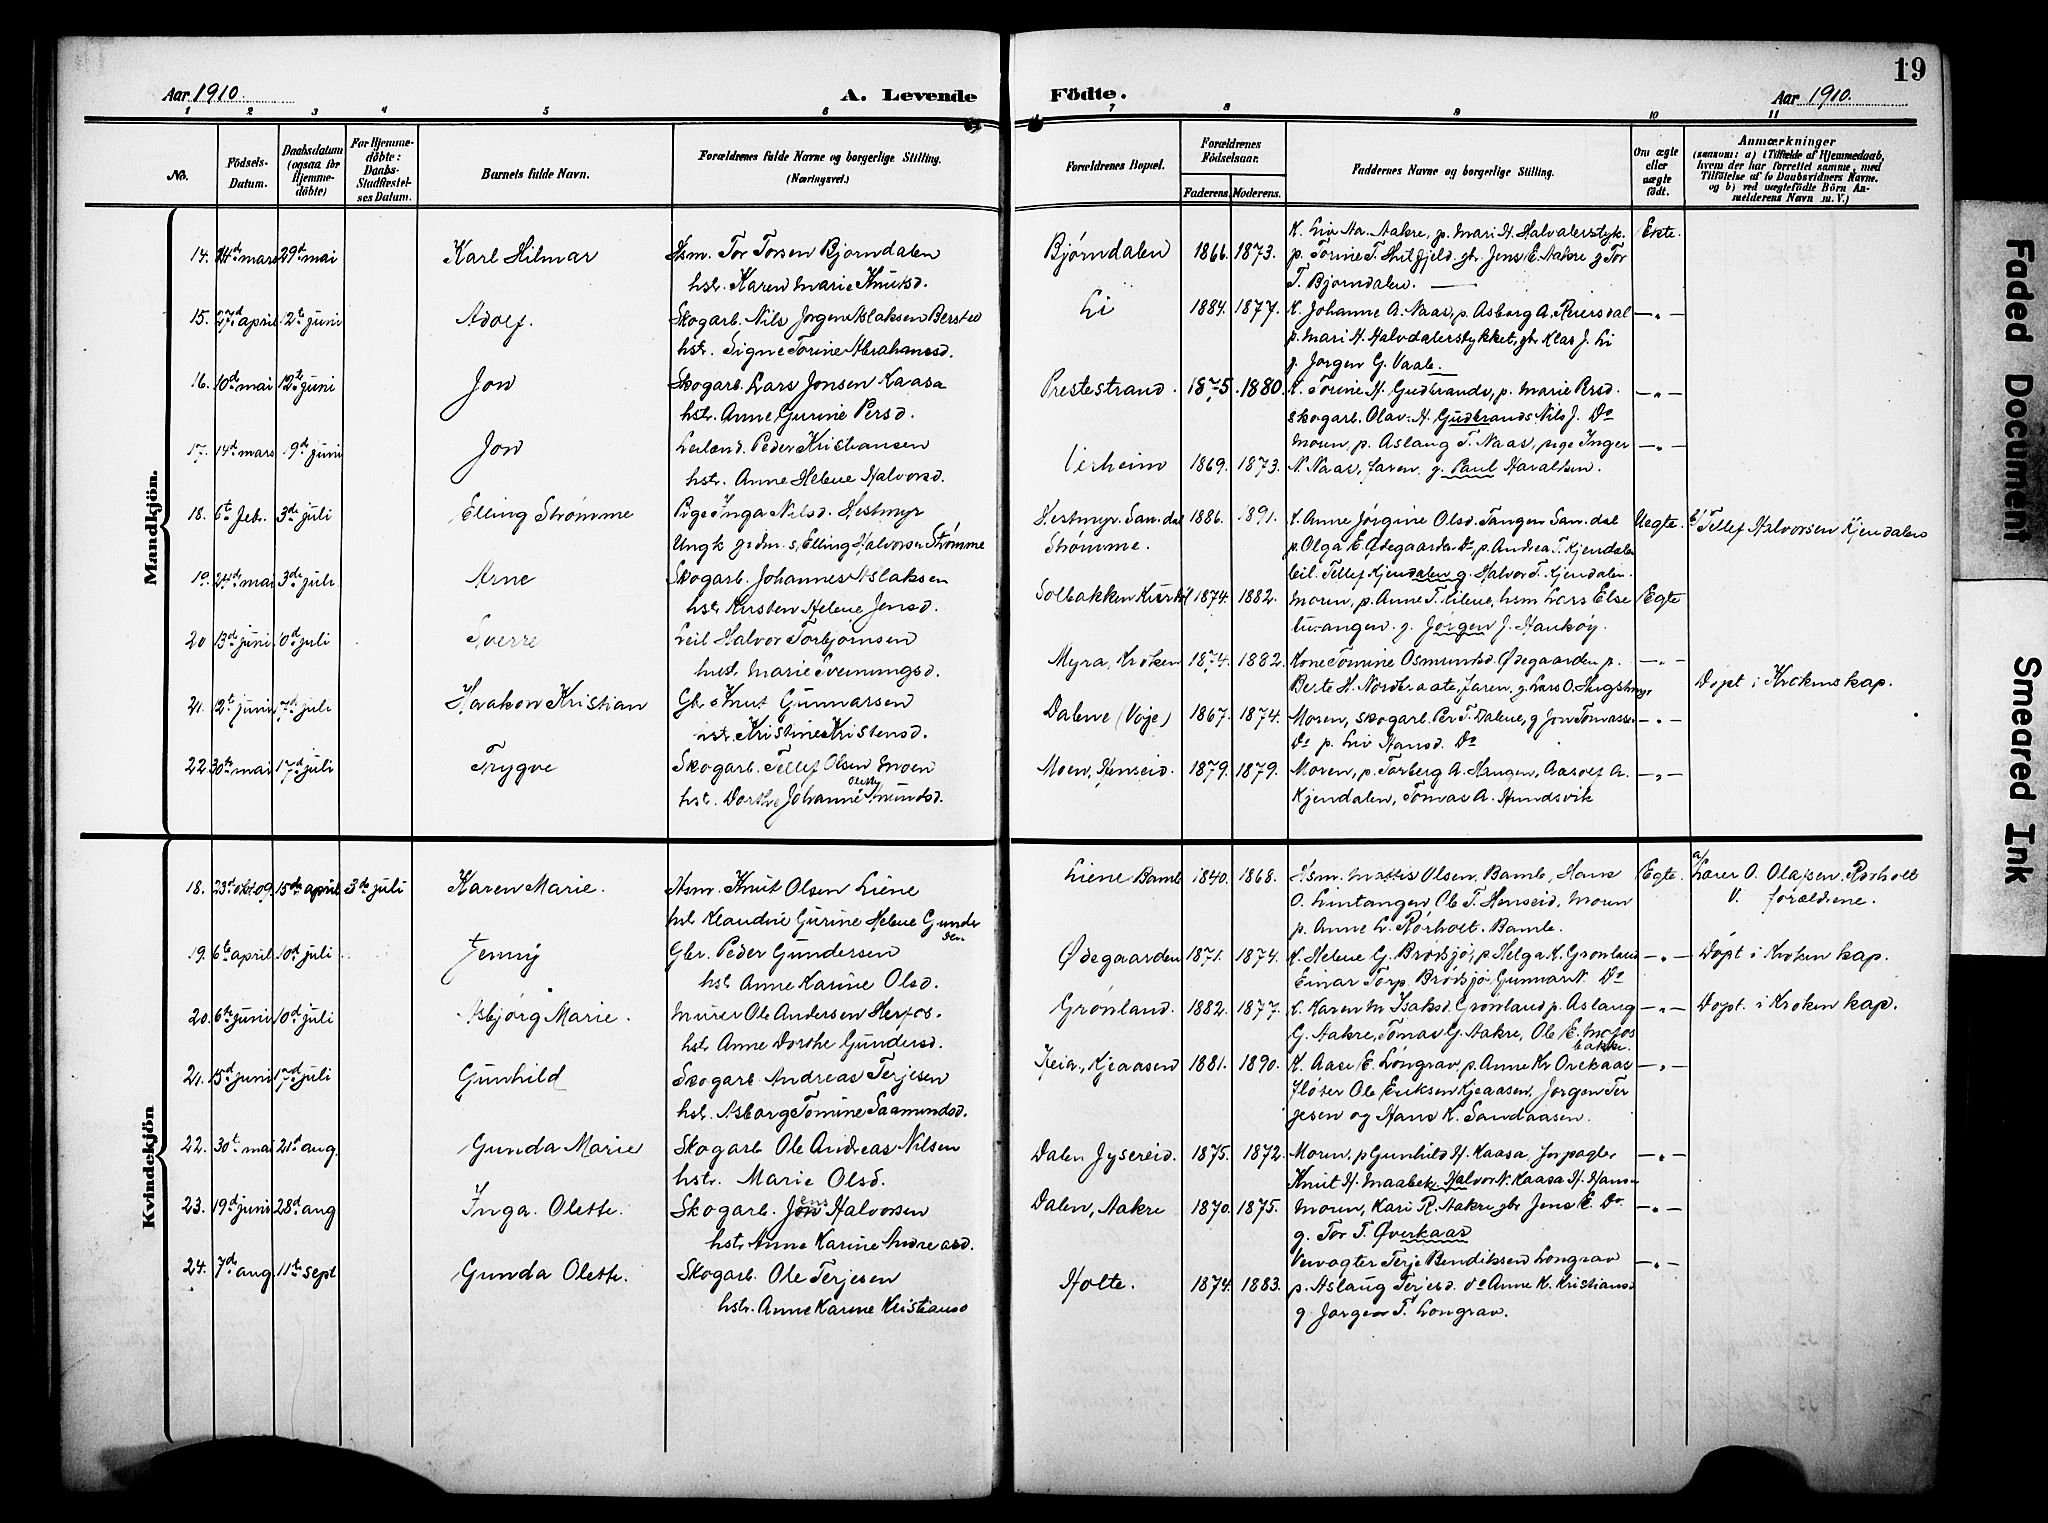 19
Aar 1910.
A. Levende
Födte.
Aar 1910.
1 2 3 4 5 6 7 8 9 10 11
No.
Födsels-Datum.
Daabsdatum (ogsaa for Hjemme-döbte)
For Hjemme-döbte: Daabs-Stadfæstel-ses Datum.
Barnets fulde Navn.
Forældrenes fulde Navne og borgerlige Stilling. (Næringsvei.)
Forældrenes Bopæl.
Forældrenes Födselsaar.
Faderens. Moderens.
Faddernes Navne og borgerlige Stilling.
Om ægte eller uægte födt.
Anmærkninger
(saasom: a) i Tilfælde af Hjemmedaab, hvem der har forrettet samme, med Tilföielse af to Daabsvidners Navne. og b) ved uægtefödte Börn An-melderens Navn m. V.)
Mandkjön.
14. 14de mars 29de mai Karl Hilmar Hsm. Tor Torsen Bjørndalen
hstr. Karen Marie Knutsd.
Bjørndalen 1866. 1873. K. Liv Aa. Aakre, p. Mari H. Halvalerstyk.
p. Torine T. Hutfjeld. gbr Jens E. Aakre g Tor
T. Bjørndalen. Ekte.
15. 27de april 12te juni Adolf. Skogarb. Nils Jørgen Aslaksen Berstad
hstr. Signe Torine Abrahamsd.
Li 1884. 1877. K. Johanne A. Naas, p. Asborg A. Reiersdal
p. Mari H. Halvdalerstykket, gbr Klas J. Li
g. Jørgen G. Vaale. — „ —
16. 10de mai 12te juni Jon Skogarb. Lars Jonsen Kaasa
hstr. Anne Gurine Persd.
Prestestrand. 1875. 1880. K. Torine H. Gudbrands, p. Marie Persd.
skogarb. Olav H. Gudbrands Nils J. Do — „ —
17. 14de mars 19de juni Jon Leilænd. Peder Kristiansen
hstr. Anne Helene Halvorsd.
Verheim 1869. 1873. Moren, p. Aslaug T. Naas, pige Inger
N. Naas, faren, g. Paul Haralsen. — „ —
18. 6te febr. 3de juli Elling Strømme Pige Inga Nilsd. Hestmyr
Ungk gsdm. s. Elling Halvorsen Strømme
Hestmyr. Sandal
Strømme. 1886. 1891. K. Anne Jørgine Olsd. Tangen Sandal
p. Olga E. Ødegaarden Do, p. Andrea T. Kjendalen
leil. Tellef Kjendalen g. Halvor T. Kjendalen. Uegte. b/ Tellef Halvorsen Kjendalen
19. 24de mai 3de juli Arne Skogarb. Johannes Aslaksen
hstr Kirsten Helene Jensd.
Solbakken 1874. 1882. Moren, p. Anne T. Eilene, hsm Lars Else
tuvangen. g. Jørgen J. Haukøy. Egte
20 13de juni 10de juli Sverre Leil Halvor Torbjørnsen
hust. Marie Sveinungsd.
Myra, Kroken 1874. 1882. Kone Tomine Osmundsd. Ødegaarden p.
Berte H. Nordbraate, faren, g. Lars O. Haugstmyr — „ — Døpt i Krokens kap.
21. 12te juni 17de juli Haakon Kristian Gbr Knut Gunnarsen
hstr. Kristine Kristensd.
Dalene (Voje) 1867. 1874. Moren, skogarb. Per T. Dalene, g Jon Tomass.
Do p. Liv Hansd. Do — „ —
22 30te mai 17de juli Trygve Skogarb. Tellef Olsen Moen
hst. Dorthe Johanne Olette Amundsd.
Moen, Henseid. 1879. 1879. Moren, p. Torberg A. Haugen, Aasolf A.
Kjendalen, Tomas A. Hundsvik — „ —
Kvindekjön
18. 23de okt. 09. 15de april 3de juli Karen Marie. Hsm. Knut Olsen Liene
hst Klaudine Gurine Helene Gunder
sen
Liene Bamle 1840. 1868. Hsm. Mattis Olsen, Bamle, Hans
O. Lintangen, Ole T. Henseid, Moren
p. Anne L. Rørholt. Bamle. Egte. a/ Lærer O. Olafsen. Rørholt
V. forældrene.
19. 6te april 10de juli Jenny Gbr. Peder Gundersen
hst Anne Karine Olsd.
Ødegaarden 1871. 1874. K. Helene G. Brødsjø, p. Helga K. Grønland
Einar Torp. Brødsjø, Gunnar N. Do — „ — Døpt i Kroken kap.
20. 6te juni 10de juli Asbjørg Marie. Murer Ole Andersen Herfos.
hstr Anne Dorthe Gundersd.
Grønland. 1882. 1877. K. Karen M Isaksd. Grønland p. Aslaug
G. Aakre, Tomas G. Aakre, Ole E. Mofos
bakke. — „ — Døpt. i Kroken kap.
21. 15de juni 17de juli Gunhild Skogarb Andreas Terjesen
hst. Asborg Tomine Saamundsd.
Heia, Kjeaasen 1881. 1890. K. Aase E. Longrav p. Anne Kr Orekaas
Fløter Ole Eriksen Kjeaasen, Jørgen Ter
jesen og Hans K. Sandaasen. — „ —
22. 30te mai 21de aug. Gunda Marie Skogarb Ole Andreas Nilsen
hstr. Marie Olsd.
Dalen 1875. 1872. Moren, p Gunhild H. Kaasa, forpagter
Knut H. Maabek, Halvor N. Kaasa H. Hans — „ —
23. 19de juni 28de aug Inga. Olette. Skogarb. Jens Halvorsen
hstr Anne Karine Andreasd.
Dalen, Aakre 1870. 1875. Moren, Kari R. Aakre gbr Jens E. Do
g. Tor T. Øverkaas — „ —
24. 7de aug. 11te sept Gunda Olette. Skogarb. Ole Terjesen
hstr. Anne Karine Kristiansd
Holte. 1874. 1883. Veivogter Terje Bendiksen Longrav
p. Aslaug Terjesd. do Anne K. Kristiansd
g. Jørgen T. Longrav. — „ —
Faded Document
Smeared Ink